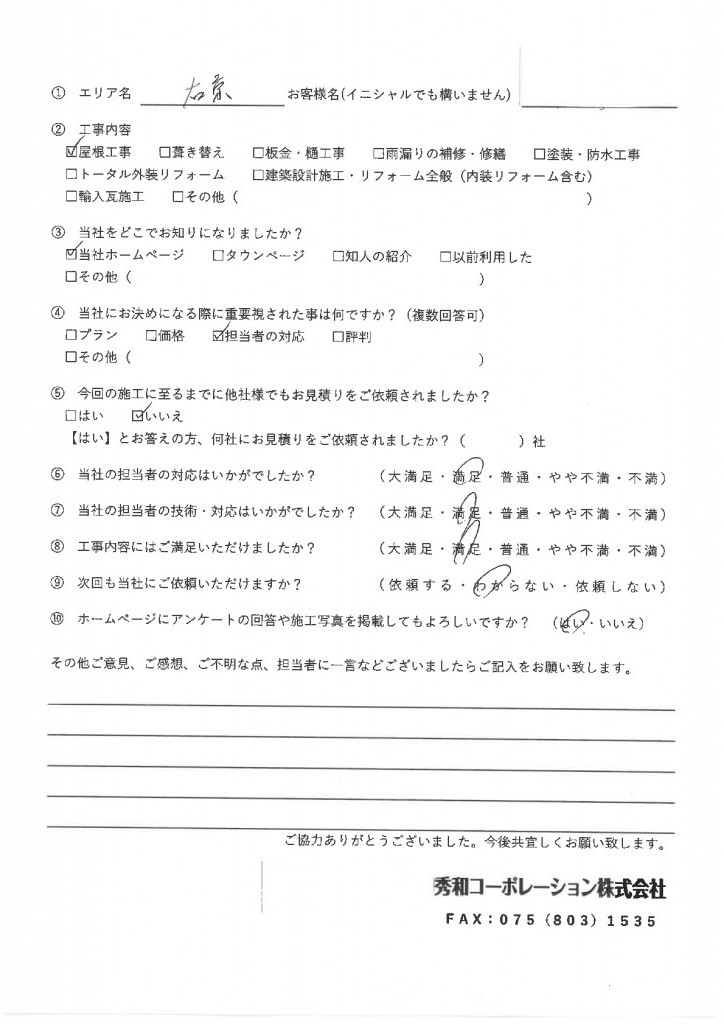 ① エリア名 右京 お客様名(イニシャルでも構いません)
② 工事内容
☑屋根工事 □葺き替え □板金・樋工事 □雨漏りの補修・修繕 □塗装・防水工事
□トータル外装リフォーム □建築設計施工・リフォーム全般（内装リフォーム含む）
□輸入瓦施工 □その他（ ）
③ 当社をどこでお知りになりましたか？
☑当社ホームページ □タウンページ □知人の紹介 □以前利用した
□その他（ ）
④ 当社にお決めになる際に重要視された事は何ですか？（複数回答可）
□プラン □価格 ☑担当者の対応 □評判
□その他（ ）
⑤ 今回の施工に至るまでに他社様でもお見積りをご依頼されましたか？
□はい ☑いいえ
【はい】とお答えの方、何社にお見積りをご依頼されましたか？（ ）社
⑥ 当社の担当者の対応はいかがでしたか？ （大満足・満足・普通・やや不満・不満）
⑦ 当社の担当者の技術・対応はいかがでしたか？ （大満足・満足・普通・やや不満・不満）
⑧ 工事内容にはご満足いただけましたか？ （大満足・満足・普通・やや不満・不満）
⑨ 次回も当社にご依頼いただけますか？ （依頼する・わからない・依頼しない）
⑩ ホームページにアンケートの回答や施工写真を掲載してもよろしいですか？ （はい・いいえ）
その他ご意見、ご感想、ご不明な点、担当者に一言などございましたらご記入をお願い致します。
ご協力ありがとうございました。今後共宜しくお願い致します。
秀和コーポレーション株式会社
FAX：075（803）1535